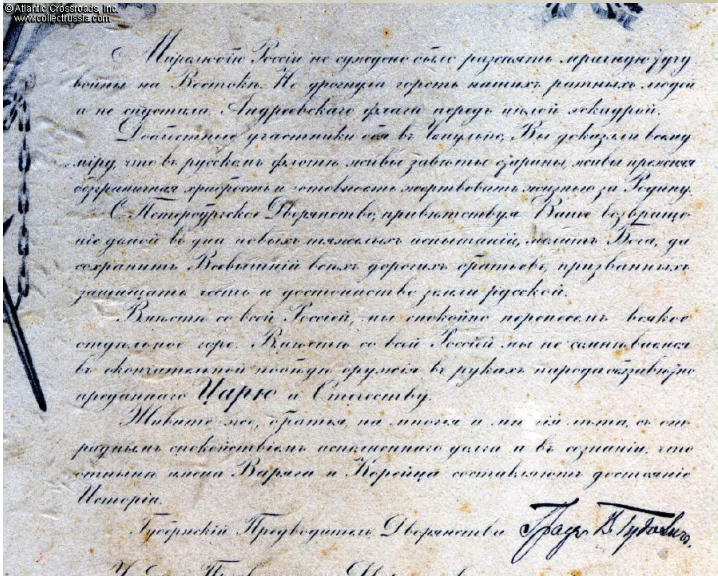 © Atlantic Crossroads, Inc.
www.collectrussia.com
Миролюбію Россіи не суждено было разсѣять мрачную тучу
войны на Востокѣ. Не дрогнула горсть нашихъ ратныхъ людей
и не спустила Андреевскаго флага передъ цѣлой эскадрой.
Доблестные участники боя въ Чемульпо, Вы доказали всему
міру, что въ русскомъ флотѣ живы завѣты старины, жива прежняя
безграничная храбрость и готовность жертвовать жизнью за Родину.
С.-Петербургское Дворянство, привѣтствуя Ваше возвраще-
ніе домой въ дни новыхъ тяжелыхъ испытаній, молитъ Бога, да
сохранитъ Всевышній всѣхъ дорогихъ братьевъ, призванныхъ
защищать честь и достоинство земли русской.
Вмѣстѣ со всей Россіей, мы спокойно перенесемъ всякое
отдѣльное горе. Вмѣстѣ со всей Россіей мы не сомнѣваемся
въ окончательной побѣдѣ оружія въ рукахъ народа беззавѣтно
преданнаго Царю и Отечеству.
Живите же, братья, на многія и многія лѣта, съ от-
раднымъ спокойствіемъ исполненнаго долга и въ сознаніи, что
отнынѣ имена Варяга и Корейца составляютъ достояніе
Исторіи.
Губернскій Предводитель Дворянства Графъ В. Гудовичъ.